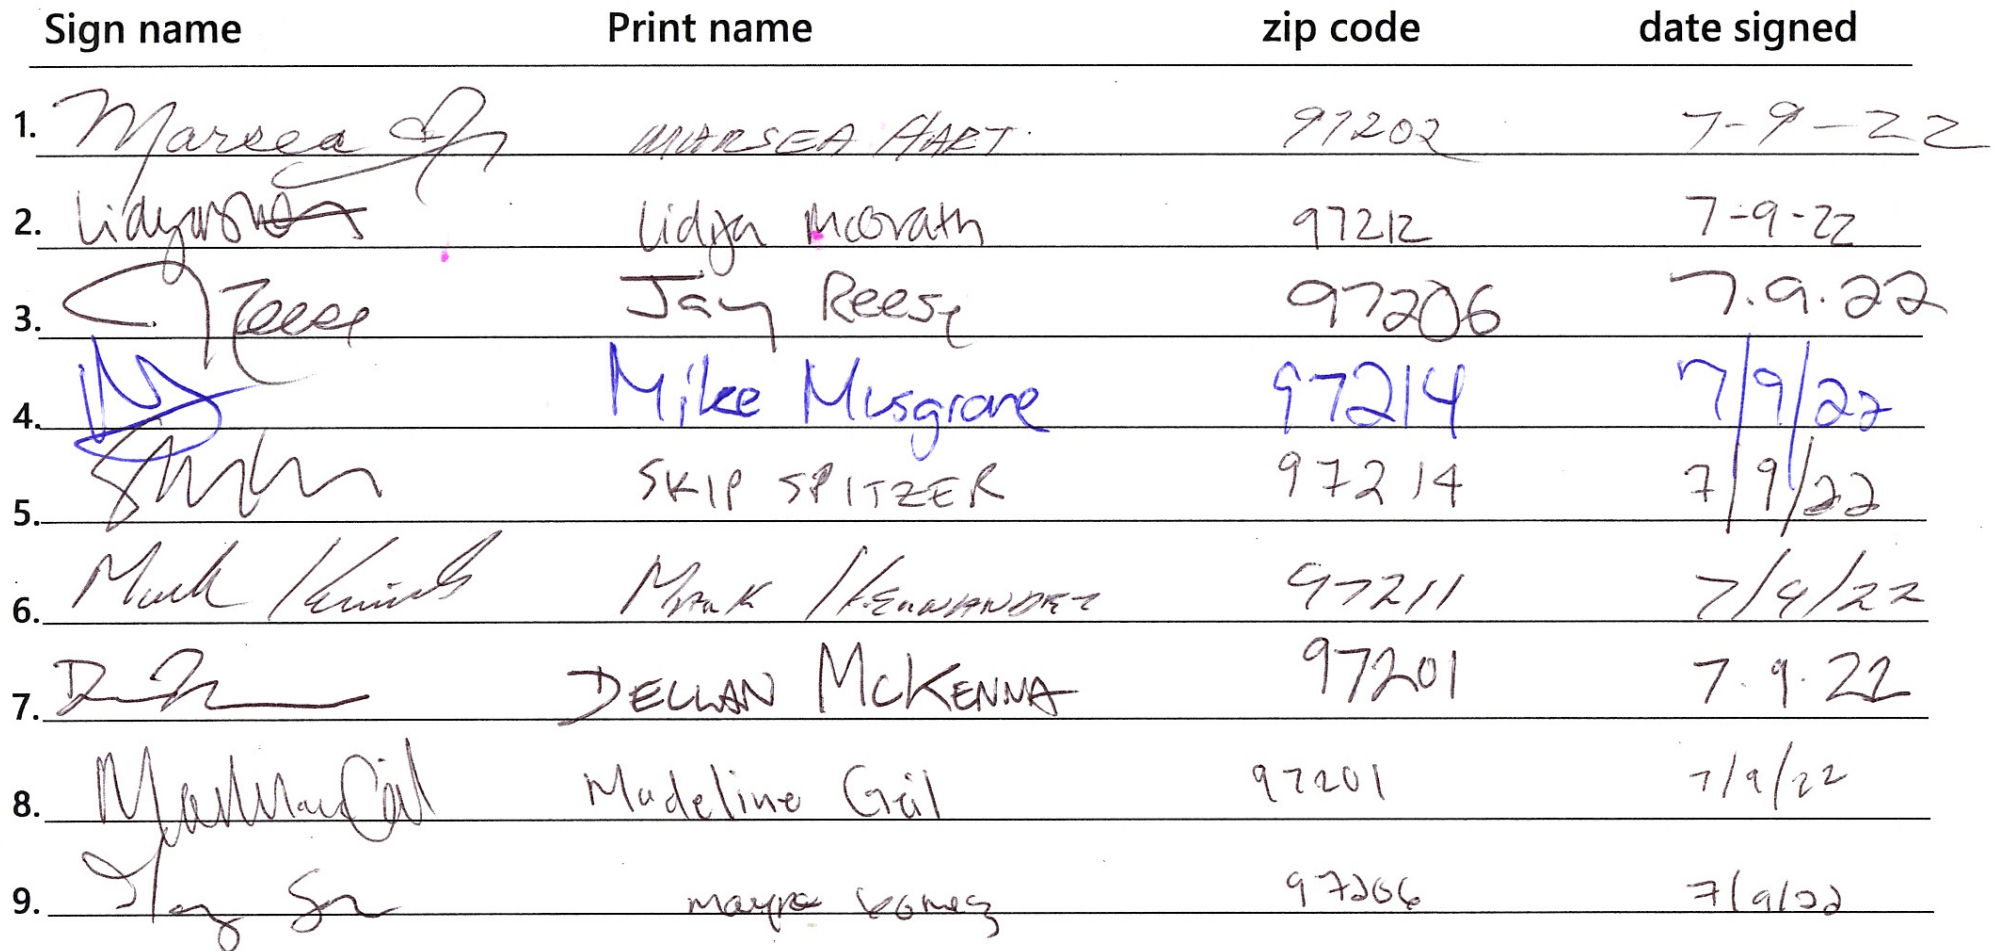 Sign name Print name zip code date signed
1. Marsea MARSEA HART. 97202 7-9-22
2. Lidija McGrath 97212 7-9-22
3. J Reese Jay Reese 97206 7.9.22
4. Mike Musgrove 97214 7/9/22
5. SKIP SPITZER 97214 7/9/22
6. Mark MARK HERNANDEZ 97211 7/9/22
7. DECLAN MCKENNA 97201 7.9.22
8. Madeline Gail 97201 7/9/22
9. 97206 7/9/22